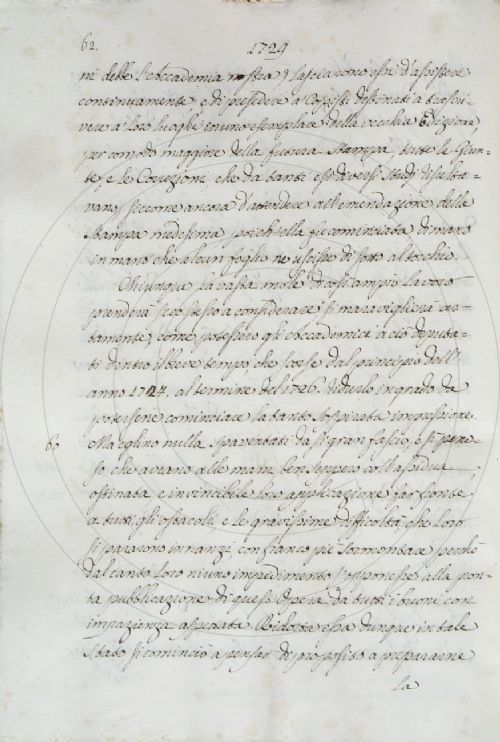 62.
1729
ni delle l'Accademia nostra) lasciarono essi d'assistere
continuamente e di presedere a' Copisti destinati a trascri-
vere a' loro luoghi in uno esemplare della vecchia Edizione,
per comodo maggiore della futura Stampa, tutte le Giun-
te, e le Correzioni, che da tanti e sì diversi studj risulta-
vano, siccome ancora d'attendere all'emendazione della
Stampa medesima poich'ella fu cominciata di mano
in mano che alcun foglio ne uscisse di sotto al torchio.
Chiunque la vasta mole di così ampio lavoro
prenderà seco stesso a considerare si maraviglierà cer-
tamente, come potessero gli Accademici a ciò deputa-
ti dentro il breve tempo, che corse dal principio dell'
anno 1724. al termine del 1726. ridurlo in grado da
potersene cominciare la tanto sospirata impressione
Ma eglino nulla spaventati da sì gran fascio, e sì pene-
so che aveano alle mani ben seppero coll'assidua
60
ostinata e invincibile loro applicazione far fronte
a tutti gli ostacoli, e le gravissime difficoltà, che loro
si pararono innanzi, con franco piè sormontare perchè
dal canto loro niuno impedimento s'opponesse alla pron-
ta pubblicazione di quest'Opera da tutti i buoni con
impazienza aspettata. Ridotta essa dunque in tale
stato si cominciò a pensar di proposito a prepararne
la